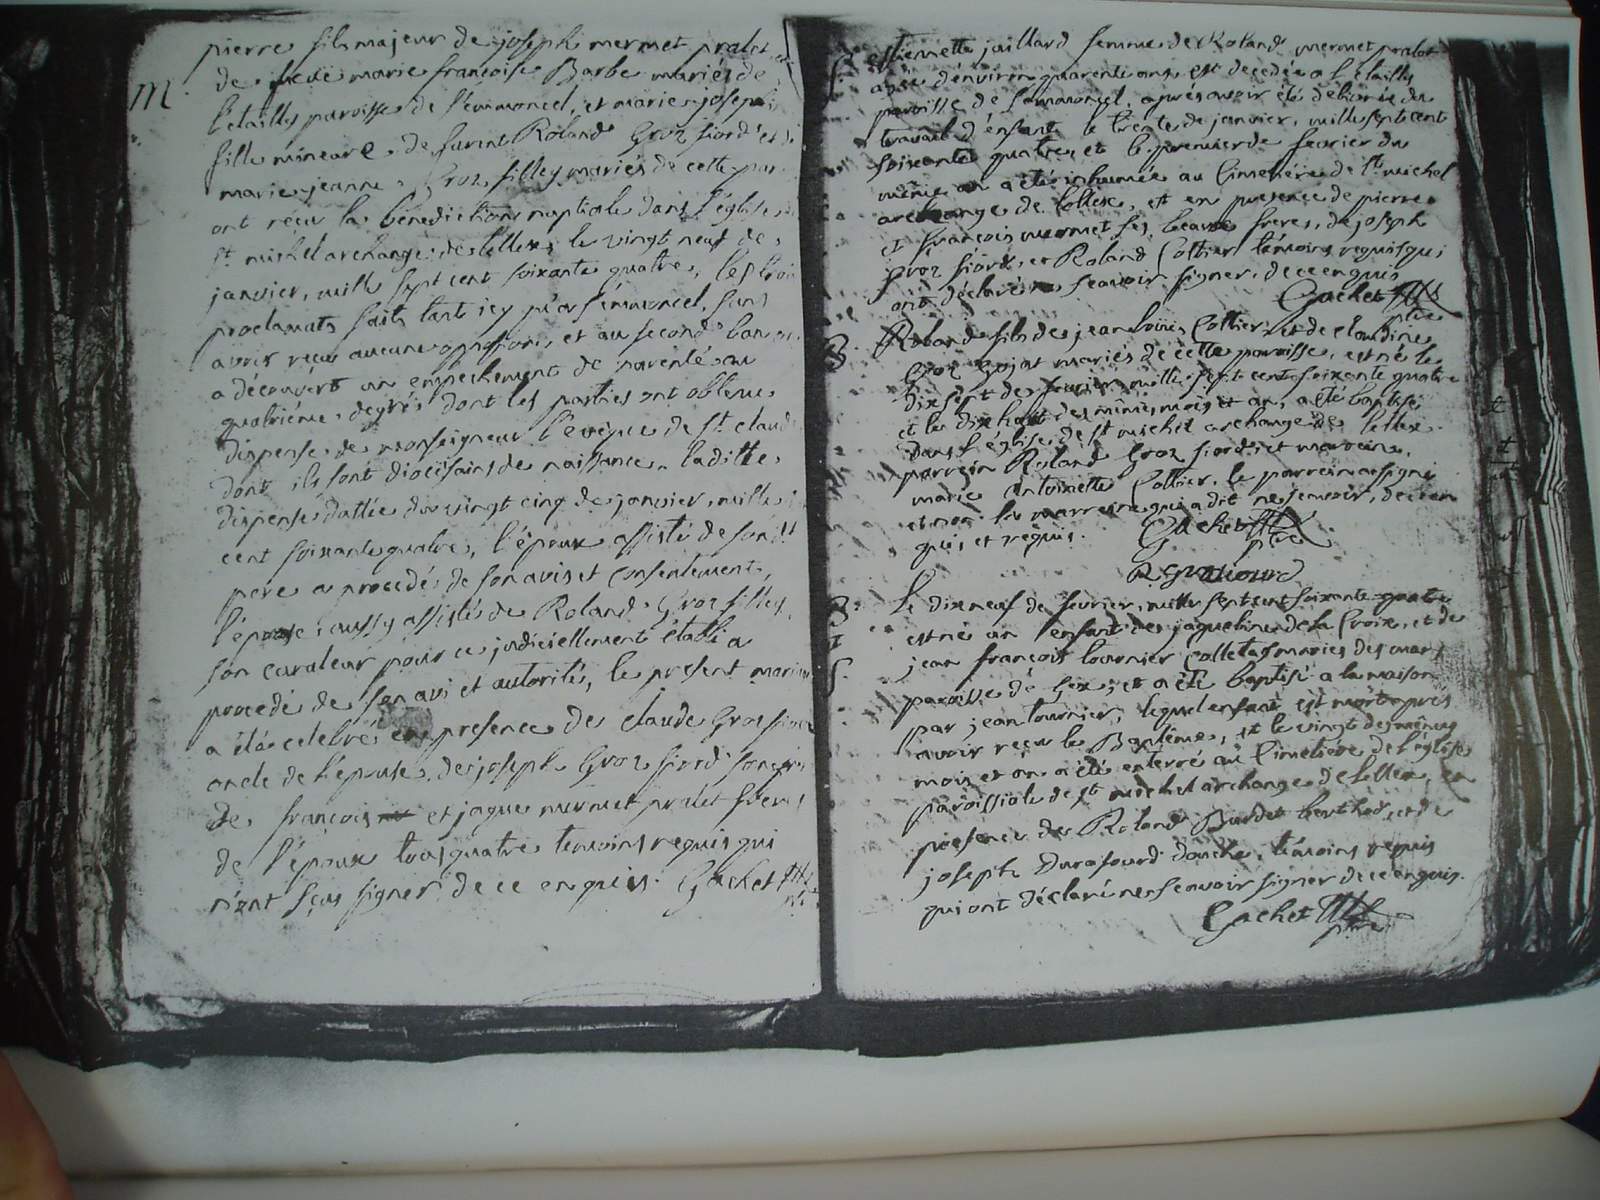 M.
pierre fils majeur de joseph mermet pralet
de marie françoise Barbe mariés de
paroisse de et marie joseph
fille mineure de furent Roland Groz fiord et
marie jeanne Groz filley mariés de cette par
ont reçu la bénédiction nuptiale dans l'église
St michel archange de lellex le vingt neuf de
janvier, mille sept cent soixante quatre, les trois
proclamats faits tant icy qu'a sans
avoir reçu aucune opposition, et au second ban
a découvert un empechement de parenté au
quatriéme degrés dont les parties ont obtenu
dispense de monseigneur l'évêque de St claude
dont ils sont diocésains de naissance. laditte
dispense dattée du vingt cinq de janvier, mille
cent soixante quatre, l'époux assisté de son dt
pere a procedé de son avis et consentement,
l'épouse aussy assistée de Roland Groz filley
son curateur pour ce judiciellement établi a
procedé de son avi et autorité, le present mariage
a été celebré en presence de claude Groz fiord
oncle de l'épouse, de joseph Groz fiord
de françois et jaque mermet pralet freres
de l'époux tous quatre temoins requis qui
n'ont sçus signer de ce enquis. Gachet ptre
S.
Etiennette juillard femme de Roland mermet pralet
agée d'environ quarente ans est decedée a
paroisse de après avoir été délivrée du
travail d'enfant le trente de janvier, mille sept cent
soixante quatre, et le premier de fevrier du
même an a été inhumée au Cimetiére de St michel
archange de lellex, et en presence de pierre
et françois mermet ses beaux freres, de joseph
groz fiord, et Roland Coltier témoins requis qui
ont déclaré ne scavoir signer, de ce enquis
Gachet ptre
B.
Roland fils de jean louis Coltier et de claudine
Groz Gojat mariés de cette paroisse, est né le
dix sept de fevrier mille sept cent soixante quatre
et le dix huit des mêmes mois et an, a été baptisé
dans l'église de St michel archange de lellex.
parrein Roland Groz fiord, et marreine
marie antoinette Coltier, le parrein a signé
et non la marreine qui a dit ne scavoir, de ce en
quis et requis. Gachet ptre
R Grozfiord
B.
et
S.
Le dix neuf de fevrier, mille sept cent soixante quatre
est né un enfant de jaqueline de la Croix, et de
jean françois tournier Colletaz mariés
paroisse de Gex, et a été baptisé a la maison
par jean tournier, lequel enfant est mort après
avoir reçu le Baptême, et le vingt des mêmes
mois et an a été enterré au Cimetiére de l'église
paroissiale de St michel archange de lellex, en
presence de Roland Burdet berthod, et de
joseph Durafourd témoins requis
qui ont déclaré ne scavoir signer de ce enquis.
Gachet ptre